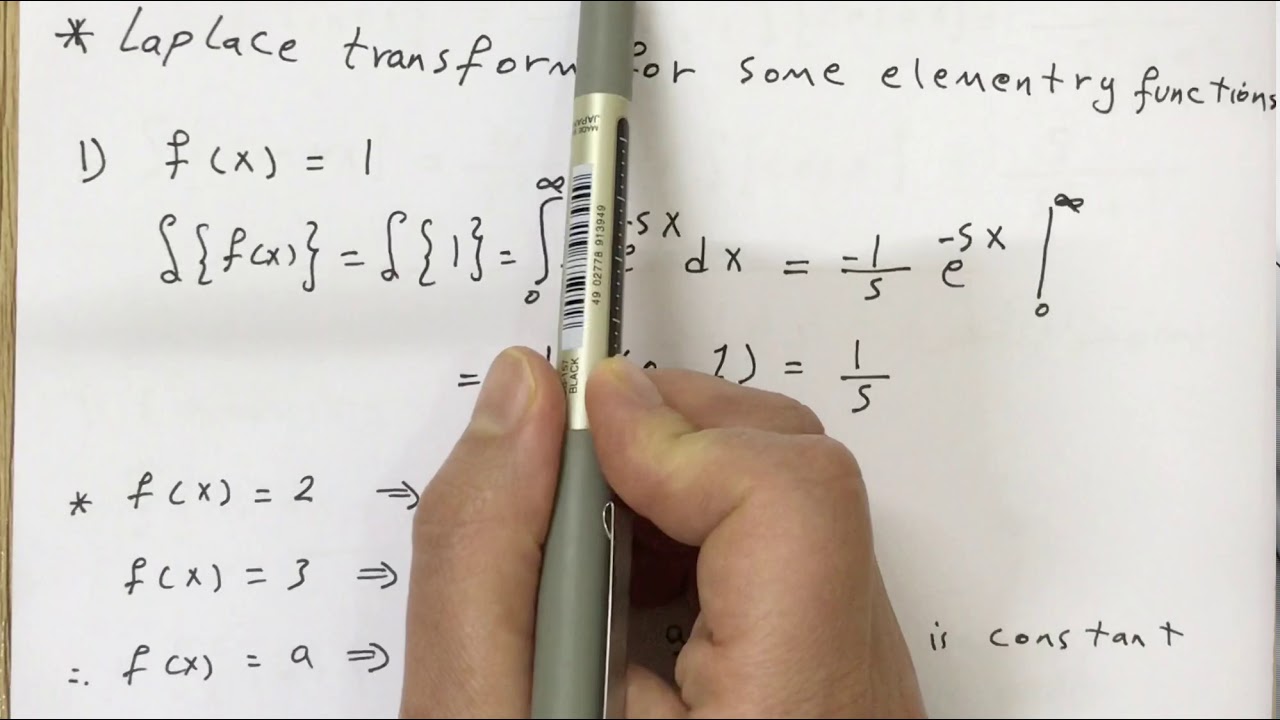 * Laplace transform for some elementry functions
1) f(x) = 1
ℒ{f(x)} = ℒ{1} = ∫₀^∞ e^-sx dx = -1/s e^-sx |₀^∞
= 1) = 1/s
* f(x) = 2 ⇒
f(x) = 3 ⇒
∴ f(x) = a ⇒ a is constant
MADE IN JAPAN
49 02778 913949
157 BLACK